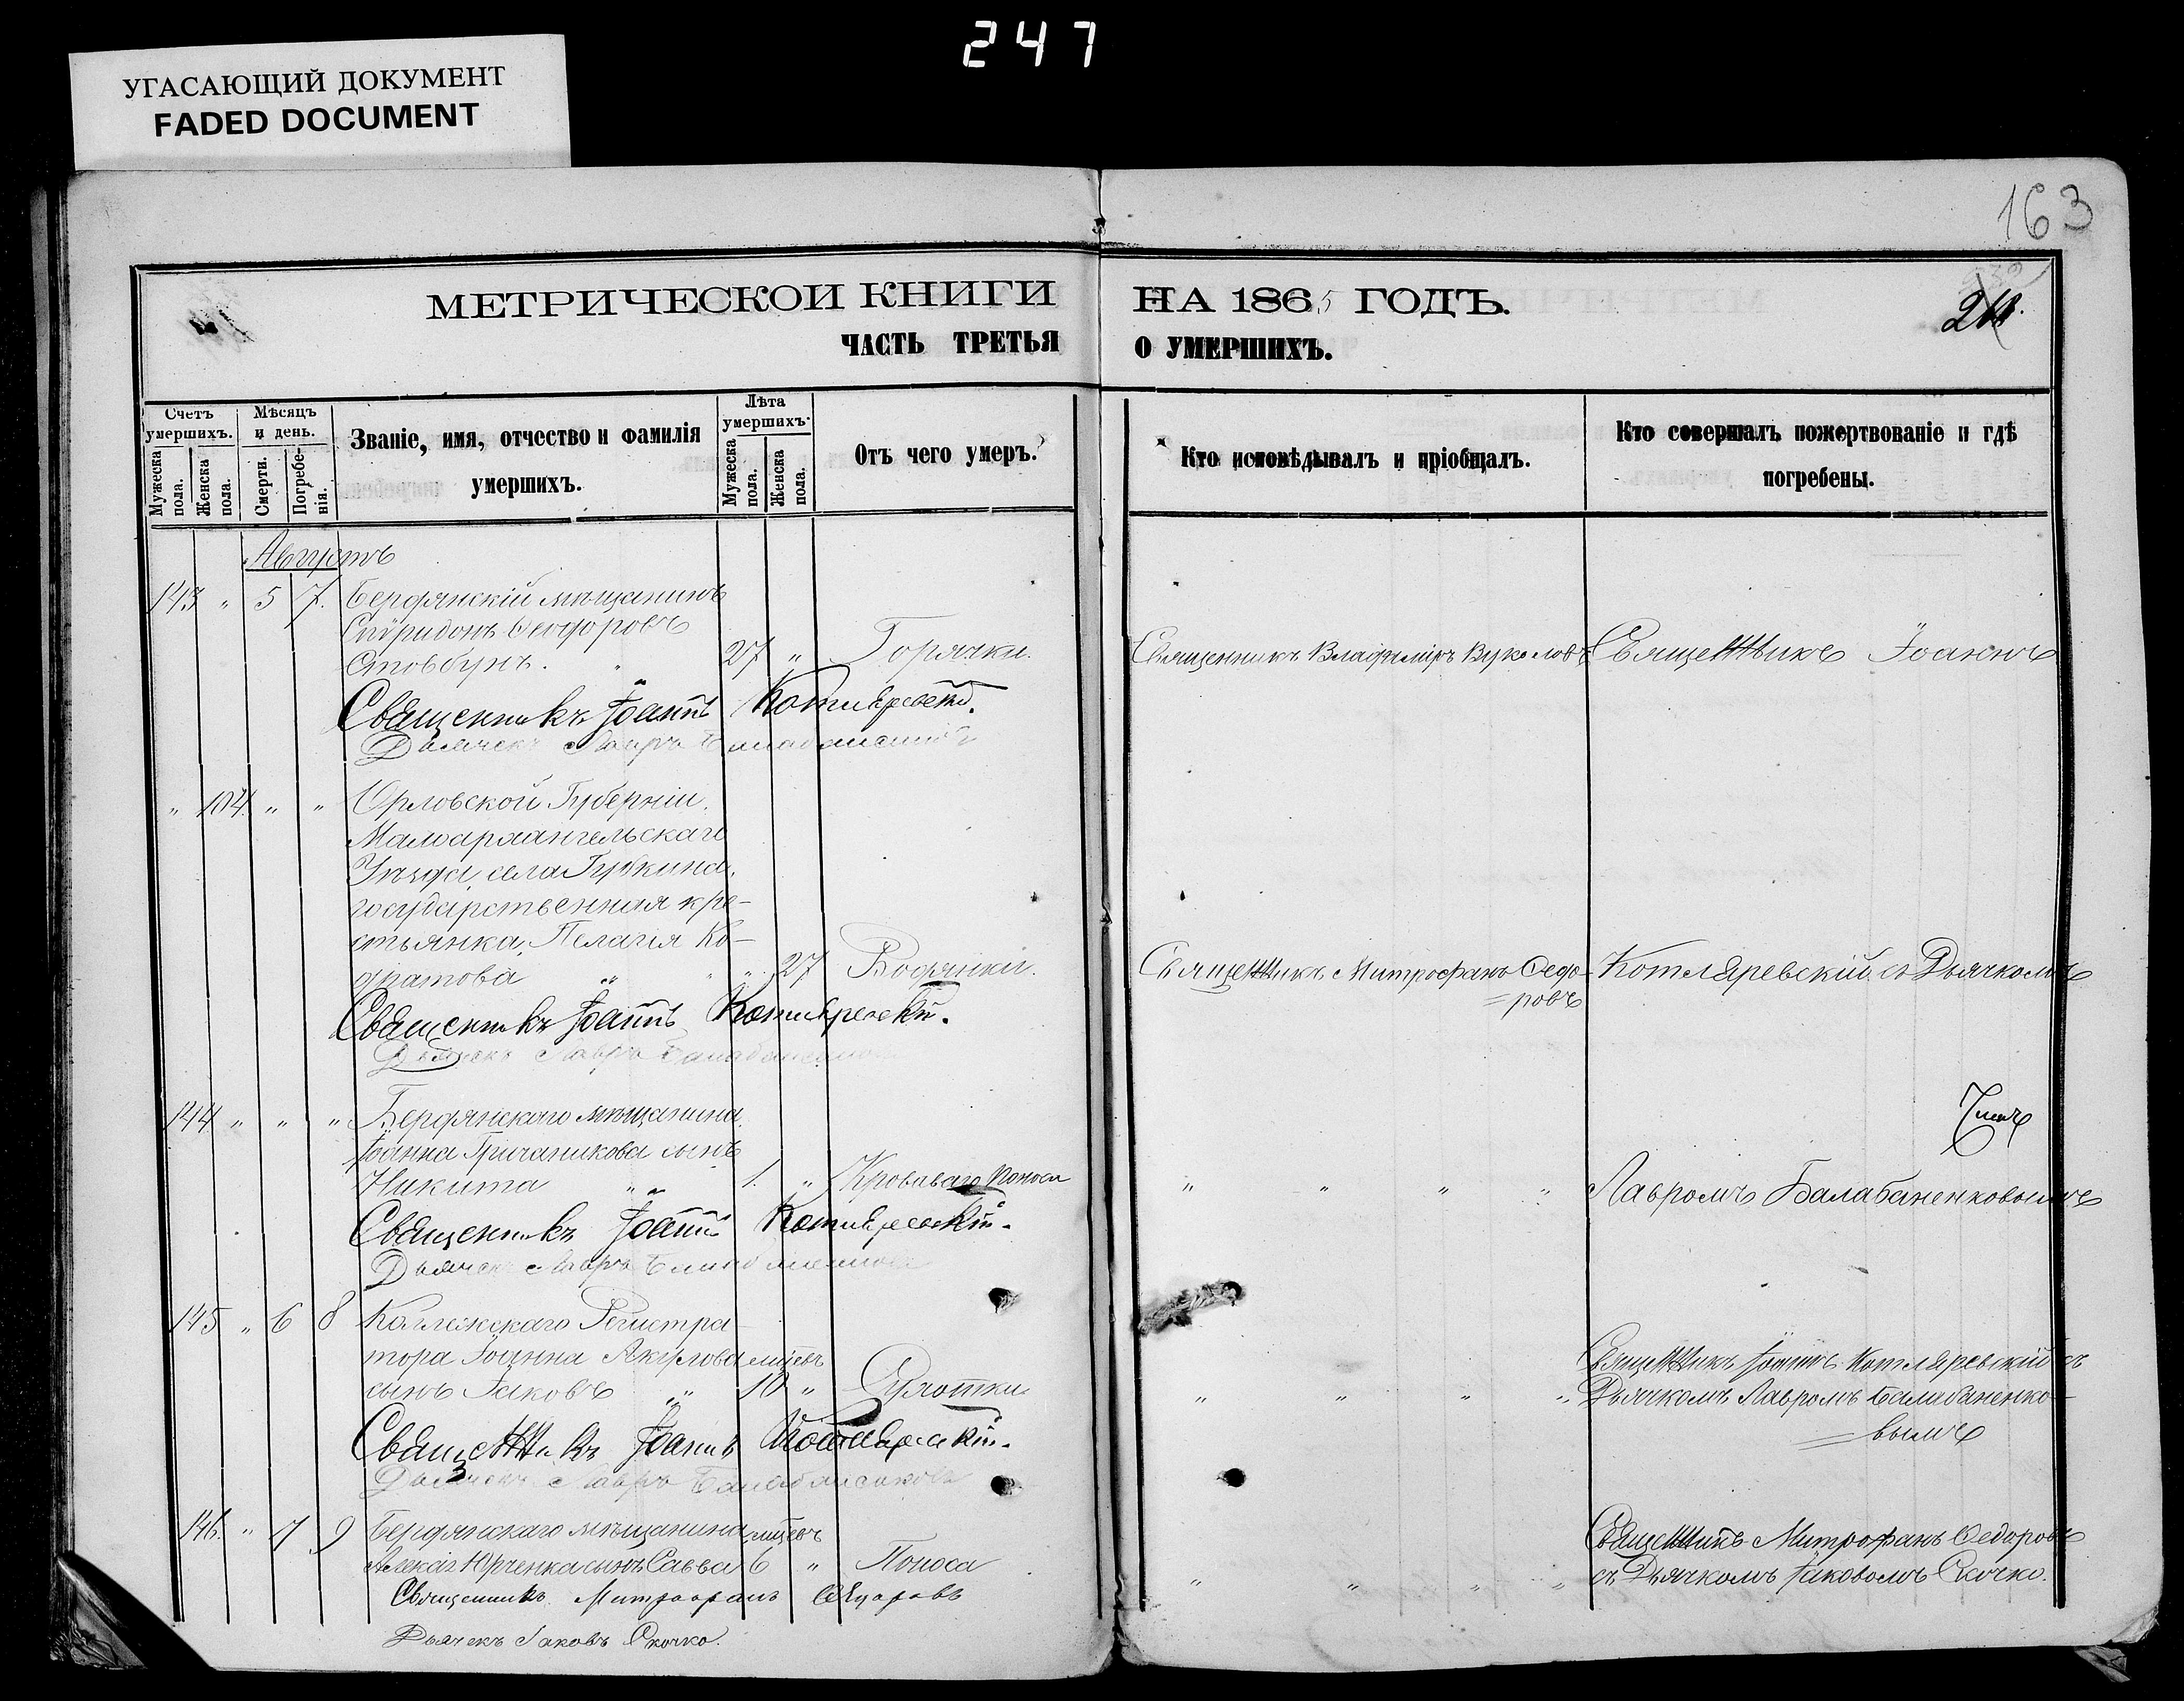 247
УГАСАЮЩИЙ ДОКУМЕНТ
FADED DOCUMENT
163
МЕТРИЧЕСКОИ КНИГИ НА 1865 ГОДЪ.
ЧАСТЬ ТРЕТЬЯ О УМЕРШИХЪ.
Счетъ умершихъ.
Мужеска пола.
Женска пола.
Мѣсяцъ и день.
Смерти.
Погребенія.
Званіе, имя, отчество и фамилія
умершихъ.
Лѣта умершихъ.
Мужеска пола.
Женска пола.
Отъ чего умеръ.
Кто исповѣдывалъ и пріобщалъ.
Кто совершалъ пожертвованіе и гдѣ
погребены.
Августъ
143 " 5 7. Бердянскій мѣщанинъ
Спѵридонъ Ѳеодоровъ
Стовбунъ. " 27 " Горячки. Священникъ Владиміръ Вуколовъ Священникъ Іоаннъ
Священникъ Іоаннъ Котляревскій.
Дьячекъ Лавръ
" 104. " " Орловской Губерніи.
Малоархангельскаго
Уѣзда, села Губкина,
государственная кре-
стьянка, Пелагія Ко-
дратова " " " 27 Водянки. Священникъ Митрофанъ Ѳедо- Котляревскій съ Дьячкомъ
=ровъ
Священникъ Іоаннъ Котляревскій.
Дьячекъ Лавръ
144 " " " Бердянскаго мѣщанина
Іоанна Гричаникова сынъ
Никита " " 1. " Кроваваго поноса " " " " Лавромъ Балабаненковымъ
Священникъ Іоаннъ Котляревскій.
Дьячекъ Лавръ
145 " 6 8 Коллежскаго Регистра-
тора Іоанна Акулова мцевъ Священникъ Іоаннъ Котляревскій съ
сынъ Іаковъ " 10 " Сухотки " " " " Дьячкомъ Лавромъ Балабаненко-
=вымъ
Священникъ Іоаннъ Котляревскій.
Дьячекъ Лавръ Балабаненковъ
146. " 7 9 Бердянскаго мѣщанина мцевъ Священникъ Митрофанъ Ѳедоровъ
Алексія Юрченка сынъ Савва 6 " Поноса " " " " съ Дьячкомъ Іаковомъ Скочко.
Священникъ Митрофанъ Ѳедоровъ
Дьячекъ Іаковъ Скочко.